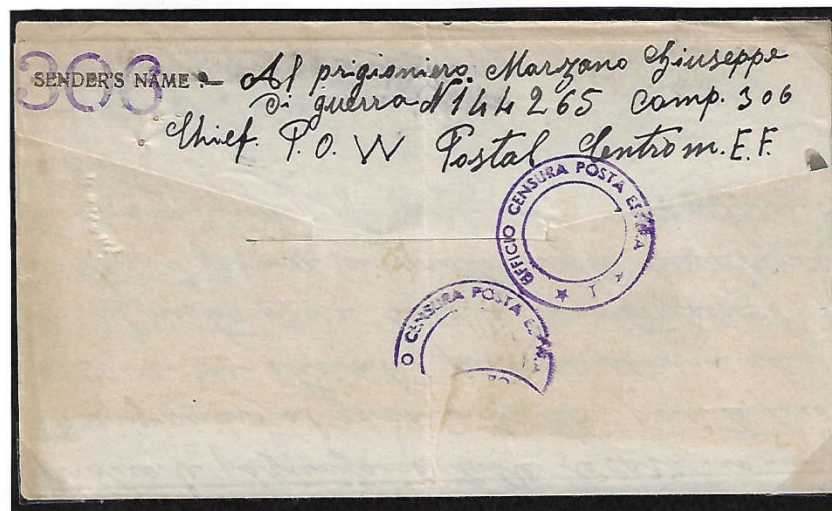 303
SENDER'S NAME :— Al prigioniero Marzano Giuseppe
Di guerra N 144265 Camp. 306
Chief. P.O.W Postal Centro m. E.F.
UFFICIO CENSURA POSTA ESTERA
★ 1 ★
O CENSURA POSTA ESTERA